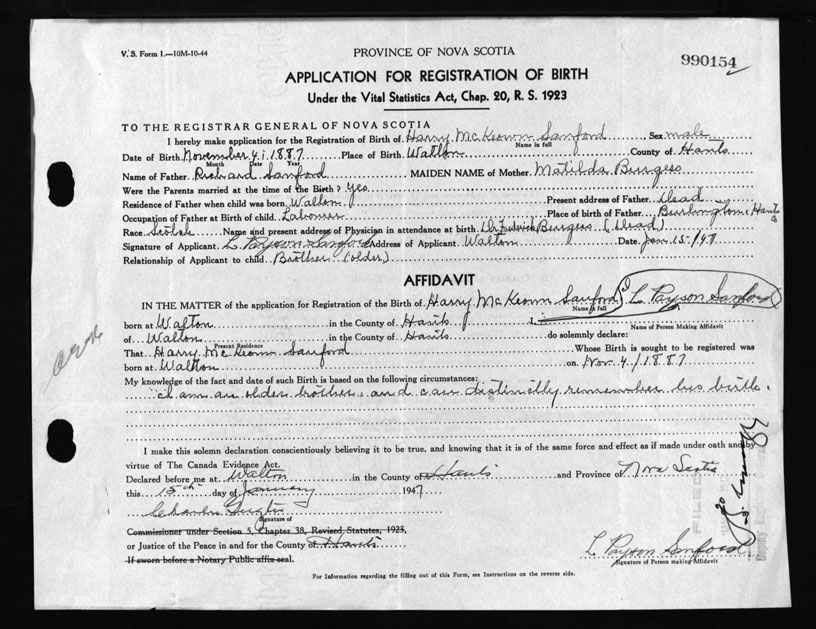 V.S. Form 1.—10M-10-44
PROVINCE OF NOVA SCOTIA
990154
APPLICATION FOR REGISTRATION OF BIRTH
Under the Vital Statistics Act, Chap. 20, R. S. 1923
TO THE REGISTRAR GENERAL OF NOVA SCOTIA
I hereby make application for the Registration of Birth of Harry McKeown Sanford Sex male
Name in full
Date of Birth November 4, 1887 Place of Birth Walton County of Hants
Month Date Year
Name of Father Richard Sanford MAIDEN NAME of Mother Matilda Burgess
Were the Parents married at the time of the Birth? Yes
Residence of Father when child was born Walton Present address of Father Dead
Occupation of Father at Birth of child Labourer Place of birth of Father Burlington, Hants Co
Race Scotch Name and present address of Physician in attendance at birth Dr Frederick Burgess (Dead)
Signature of Applicant L Payson Sanford Address of Applicant Walton Date Jan 15/47
Relationship of Applicant to child Brother (older)
AFFIDAVIT
IN THE MATTER of the application for Registration of the Birth of Harry McKeown Sanford I L Payson Sanford
Name in full
born at Walton in the County of Hants I,
Name of Person Making Affidavit
of Walton in the County of Hants do solemnly declare:
Present Residence
That Harry McKeown Sanford Whose Birth is sought to be registered was
born at Walton on Nov. 4, 1887
My knowledge of the fact and date of such Birth is based on the following circumstances:
I am an older brother, and can distinctly remember his birth.
I make this solemn declaration conscientiously believing it to be true, and knowing that it is of the same force and effect as if made under oath and by
virtue of The Canada Evidence Act.
Declared before me at Walton in the County of Hants and Province of Nova Scotia
this 15th day of January 1947
Charles
Signature of
Commissioner under Section 5, Chapter 38, Revised Statutes, 1923,
or Justice of the Peace in and for the County of Hants
If sworn before a Notary Public affix seal.
L Payson Sanford
Signature of Person making Affidavit
For Information regarding the filling out of this Form, see Instructions on the reverse side.